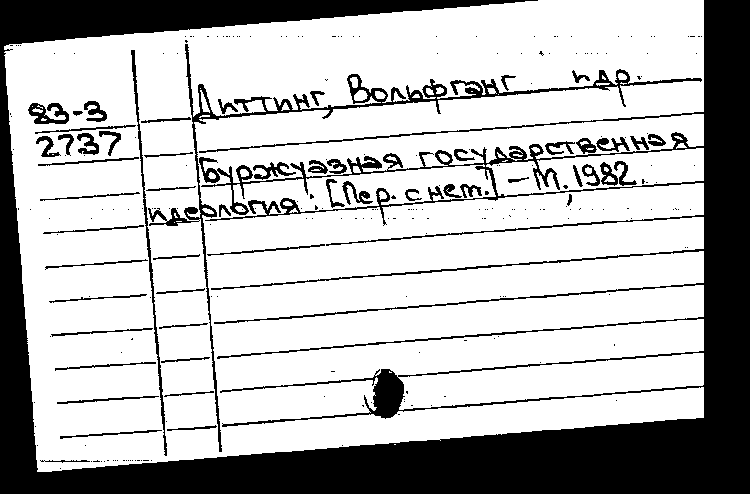 83-3
2737
Диттинг, Вольфганг и др.
Буржуазная государственная
идеология: [Пер. с нем.] – М., 1982.